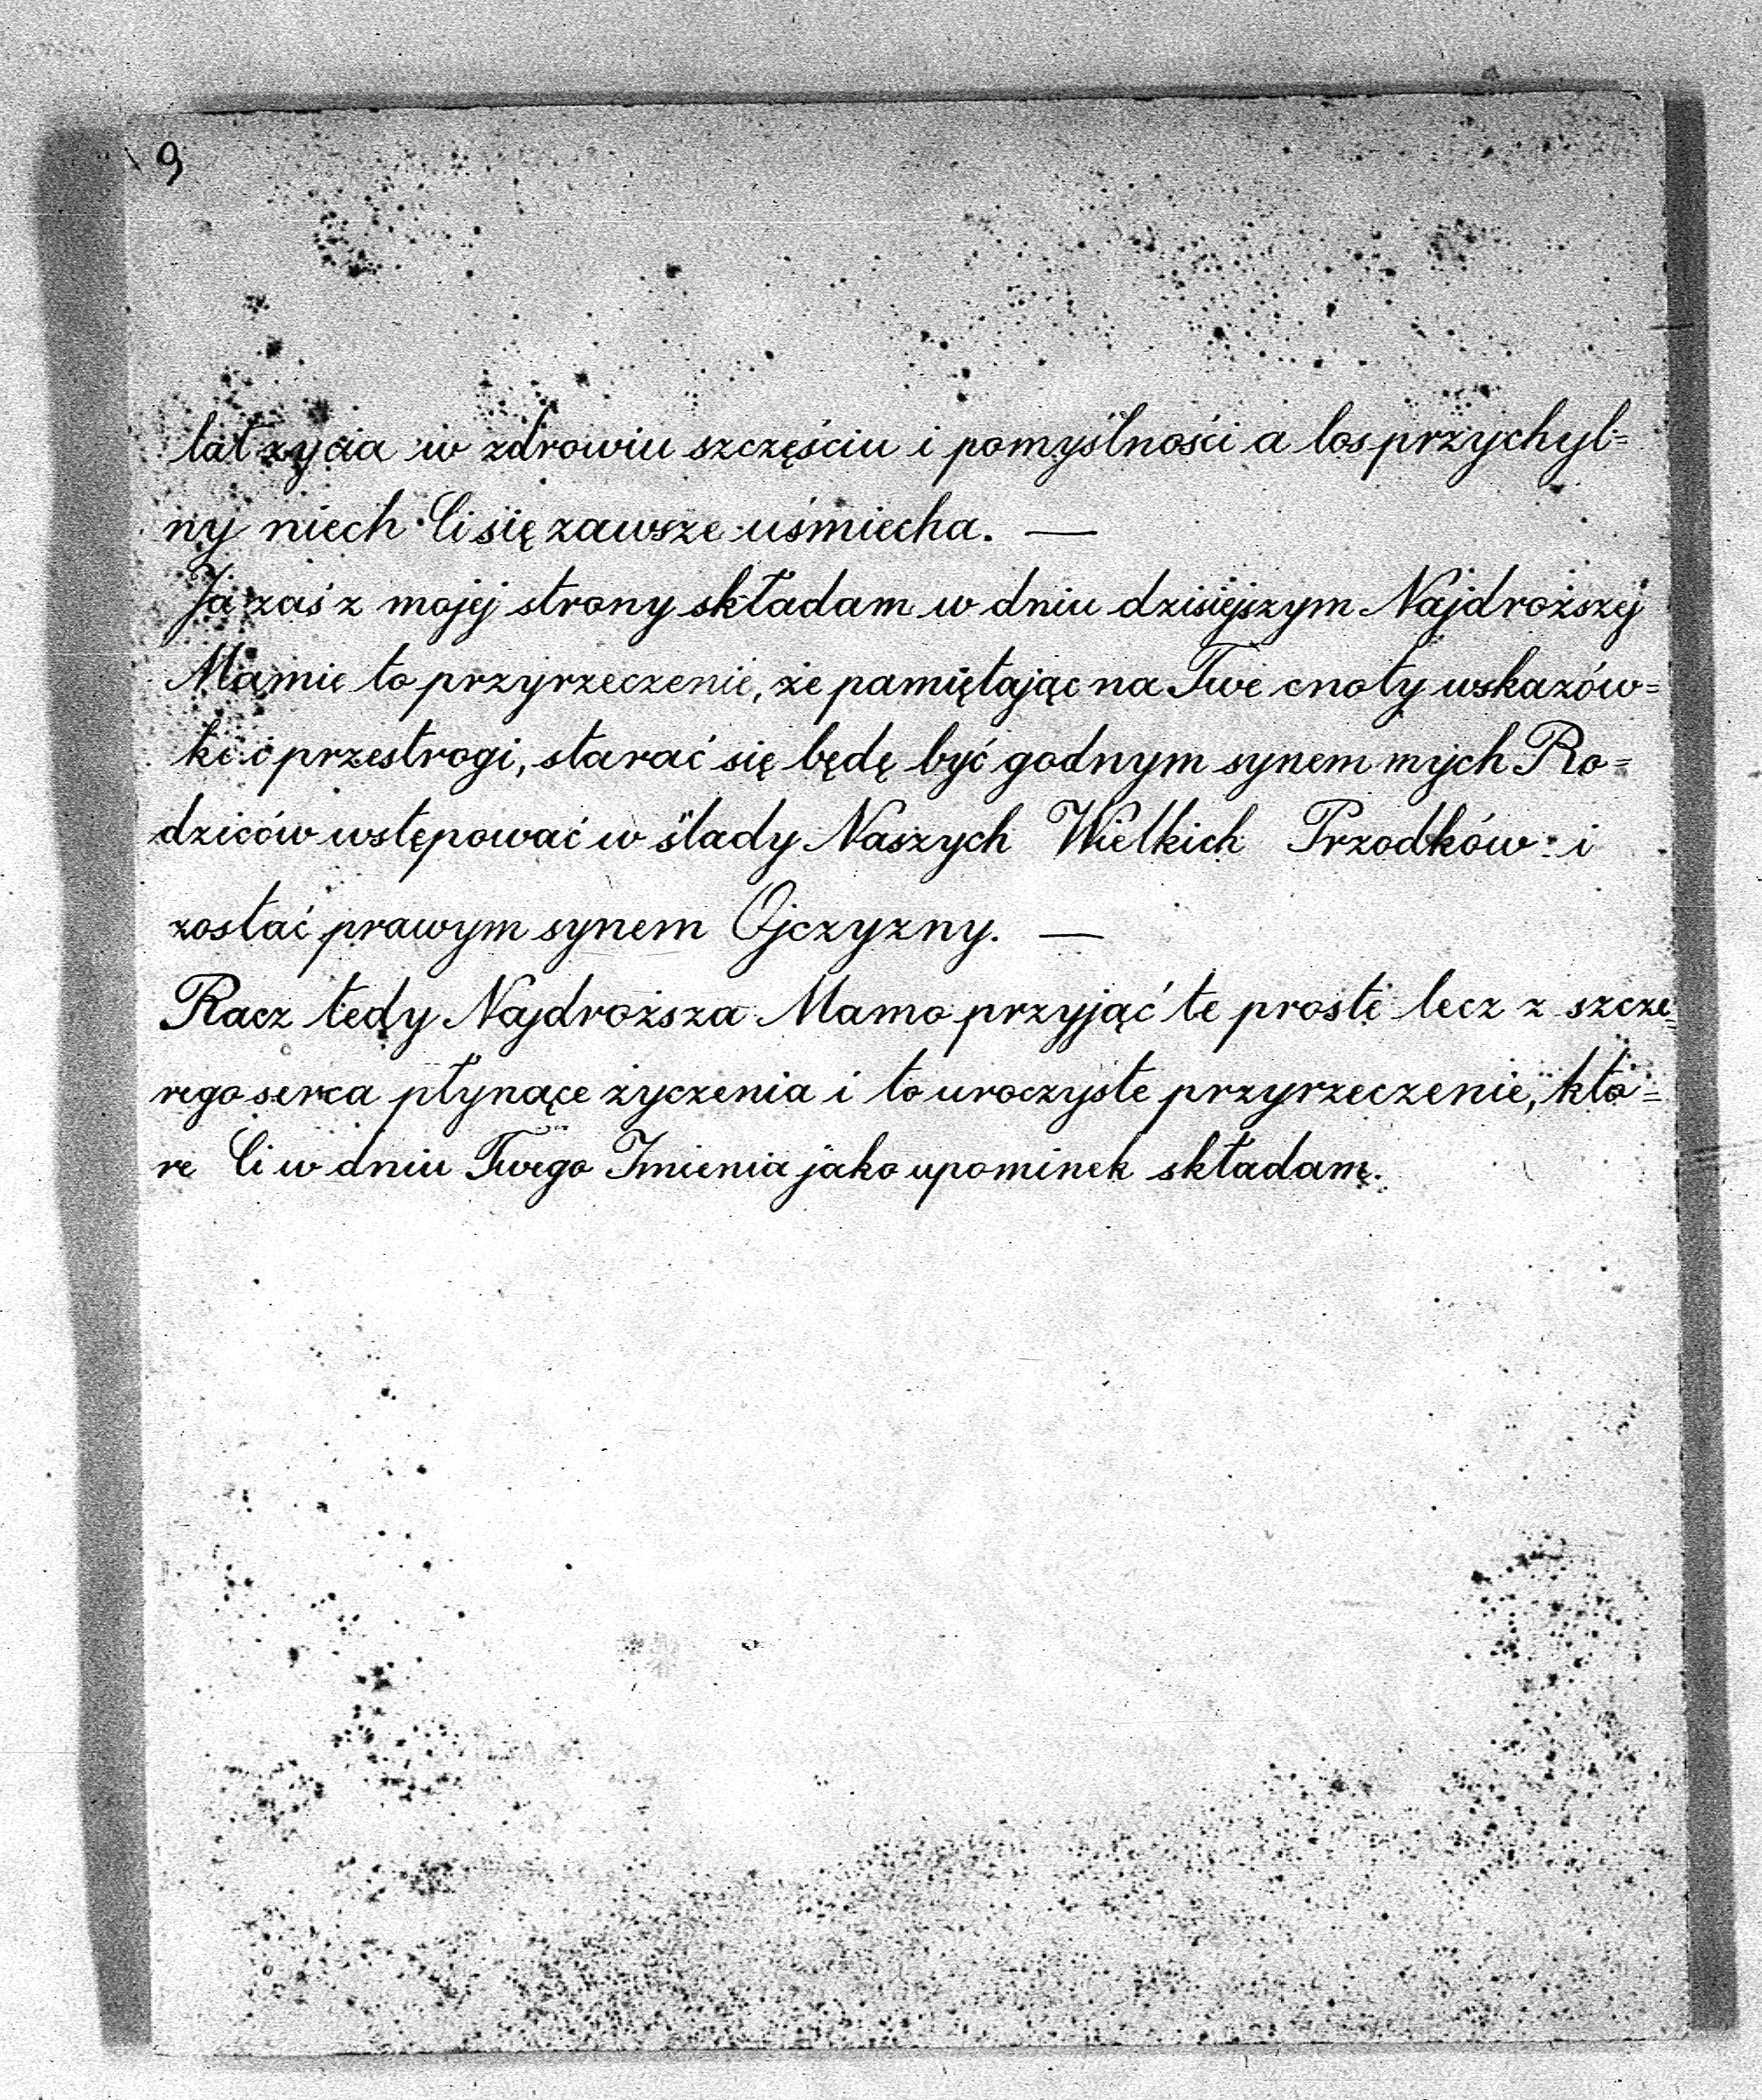 9
lat życia w zdrowiu szczęściu i pomyślności a los przychyl=
ny niech Ci się zawsze uśmiecha. —
Ja zaś z mojej strony składam w dniu dzisiejszym Najdroższej
Mamie to przyrzeczenie, że pamiętając na Twe cnoty wskazów=
ki i przestrogi, starać się będę być godnym synem mych Ro=
dziców wstępować w ślady Naszych Wielkich Przodków i
zostać prawym synem Ojczyzny. —
Racz tedy Najdroższa Mamo przyjąć te proste lecz z szcze=
rego serca płynące życzenia i to uroczyste przyrzeczenie, któ=
re Ci w dniu Twego Imienia jako upominek składam.